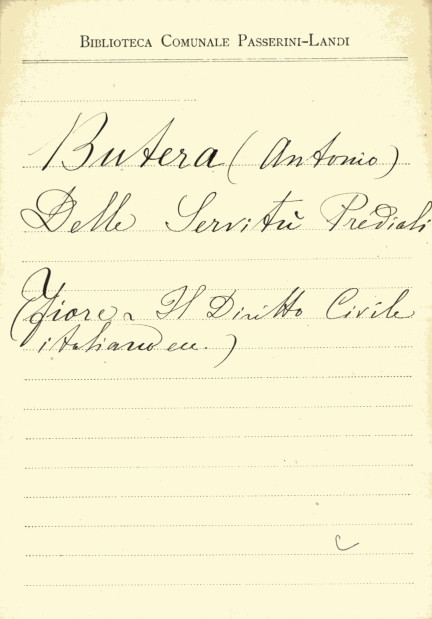 BIBLIOTECA COMUNALE PASSERINI-LANDI
Butera (Antonio)
Delle Servitù Prediali
(Fiore - Il Diritto Civile
italiano ecc.)